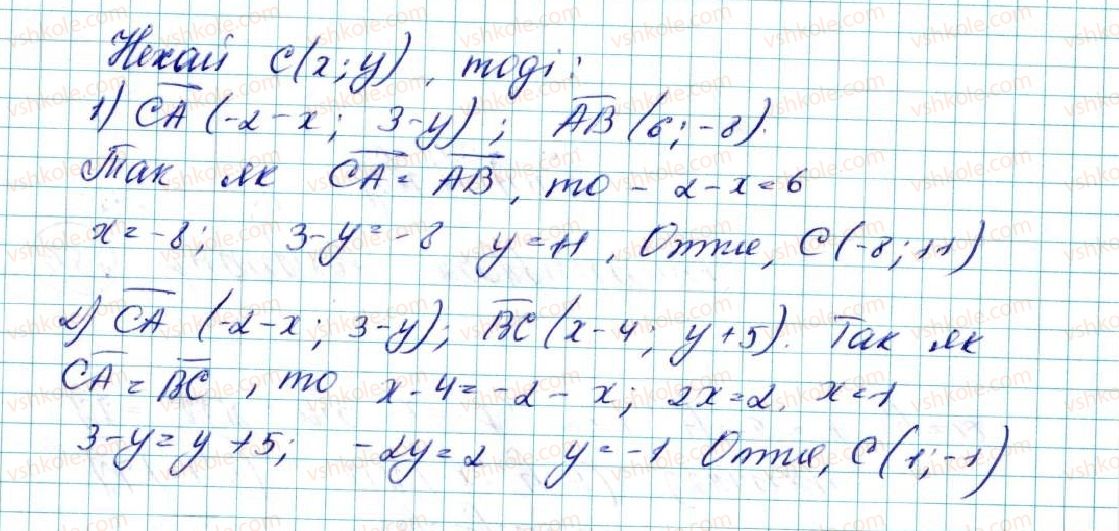 Нехай C(x; y), тоді:
1) CA (-2-x; 3-y); AB (6; -8).
Так як CA = AB, то -2-x=6
x=-8; 3-y=-8 y=11, Отже, C(-8; 11)
2) CA (-2-x; 3-y); BC (x-4; y+5). Так як
CA = BC, то x-4=-2-x; 2x=2, x=1
3-y=y+5; -2y=2 y=-1 Отже, C(1; -1)